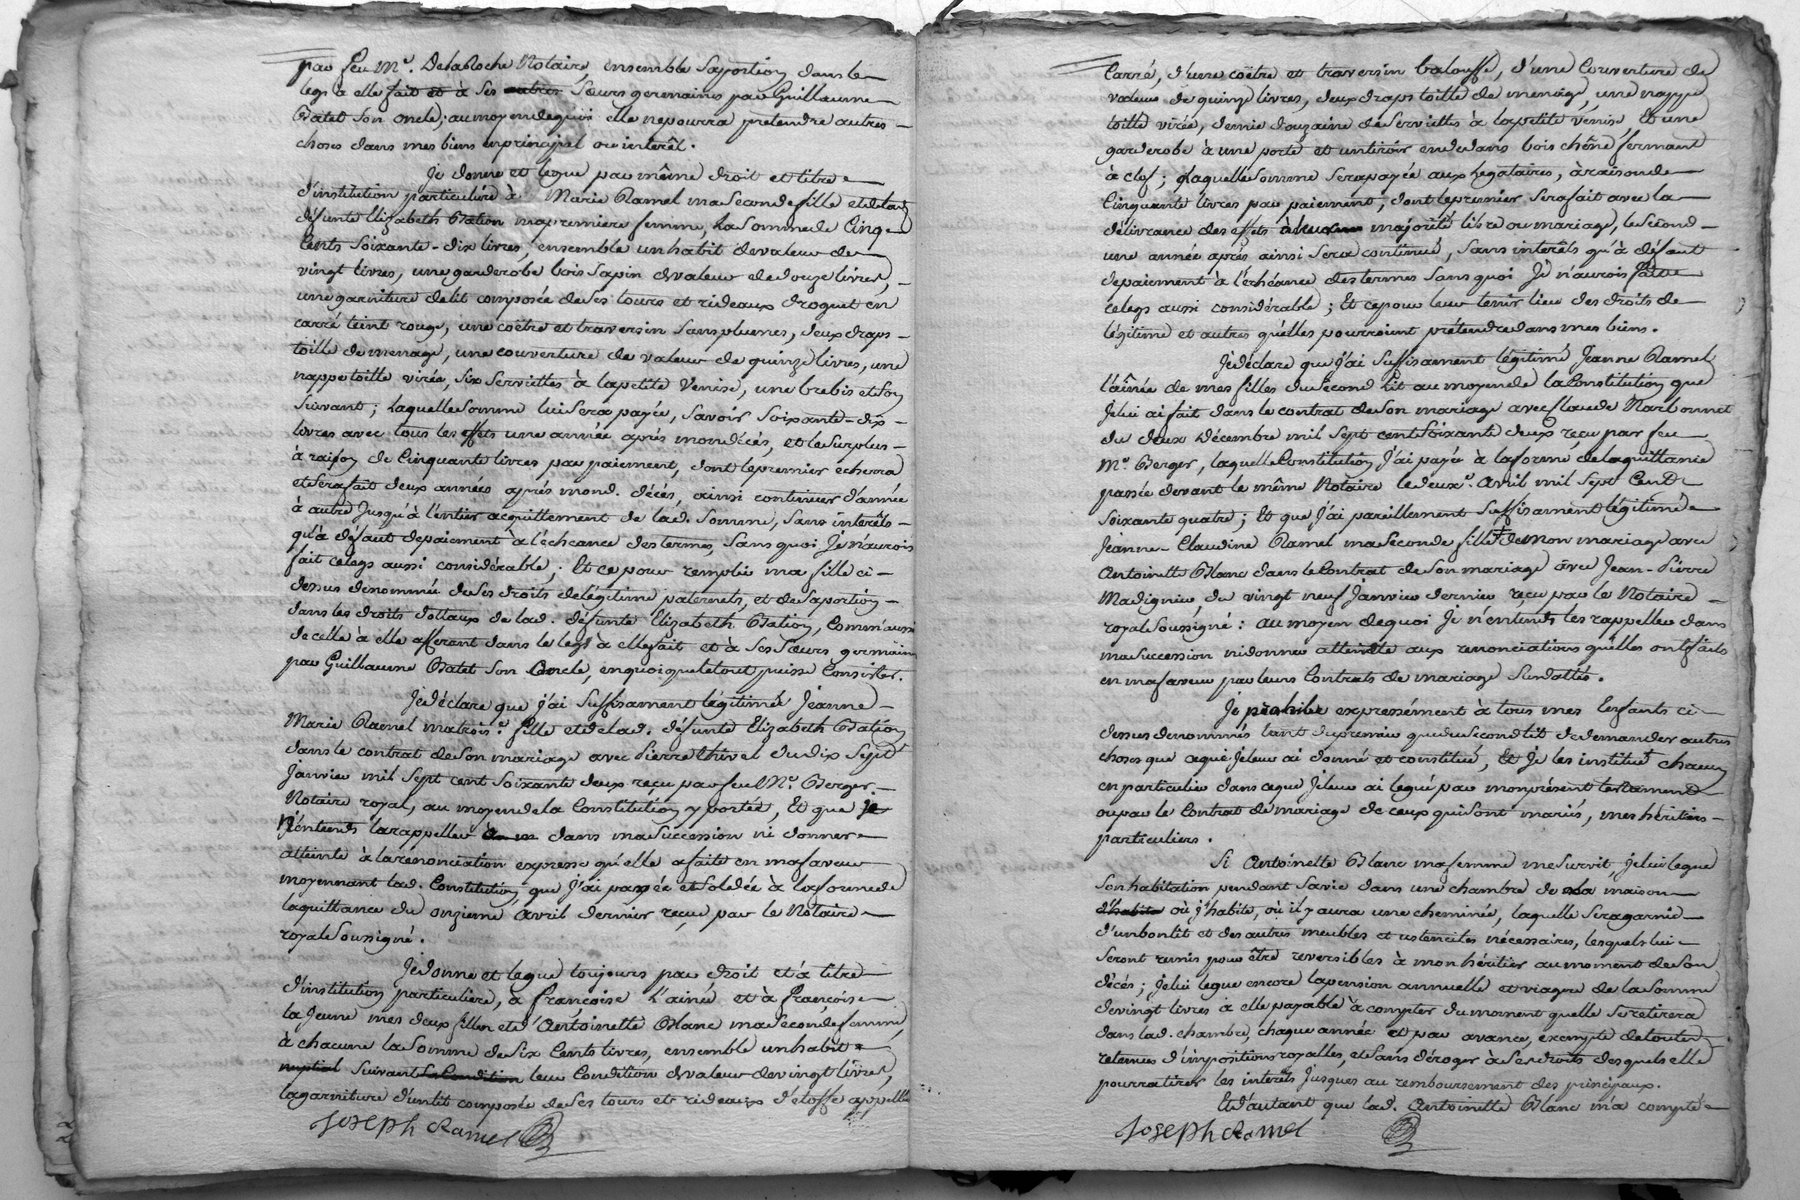 par feu Me. Delaroche Notaire, ensemble sa portion dans le
legs à elle fait et à ses autres sœurs germaines par Guillaume
Batet son oncle; au moyen de quoi elle ne pourra prétendre autres
choses dans mes biens en principal ou intérêt.
Je donne et legue par même droit et titre
d'institution particulière à Marie Ramel ma seconde fille et de lad
défunte Elizabeth Bation ma premiere femme, la somme de Cinq
Cents soixante-dix livres, ensemble un habit de valeur de
vingt livres, une garderobe bois sapin de valeur de douze livres,
une garniture de lit composée de ses tours et rideaux droguet en
carré teint rouge, une coëtre et traversin sans plumes, deux draps
toille de menage, une couverture de valeur de quinze livres, une
nappe toille virée, six serviettes à la petite Venise, une brebis et son
suivant; laquelle somme lui sera payée, savoir soixante-dix
livres avec tous les effets une année après mon décés, et le surplus
à raison de Cinquante livres par paiement, dont le premier echerra
et sera fait deux années après mond. décés, ainsi continuer d'année
à autre jusqu'à l'entier acquittement de lad. somme, sans intérêts
qu'à défaut de paiement à l'échéance des termes, sans quoi je n'aurois
fait ce legs aussi considérable; Et ce pour remplir ma fille ci-
dessus dénommée de ses droits de légitime paternels, et de sa portion
dans les droits dottaux de lad. défunte Elizabeth Bation, Comm'aussi
de celle à elle afférant dans le legs à elle fait et à ses sœurs germaines
par Guillaume Batet son Oncle, en quoi que le tout puisse Consister.
Je déclare que j'ai suffisament légitimé Jeanne
Marie Ramel ma trois.e fille et de lad. défunte Elizabeth Bation
dans le contrat de son mariage avec Pierre Thivel du dix sept
Janvier mil sept cent soixante deux reçu par feu Me. Berger
Notaire royal, au moyen de la Constitution y portée, Et que je
n'entends la rappeller dans ma succession ni donner
atteinte à la renonciation expresse qu'elle a faite en ma faveur
moyennant lad. Constitution, que j'ai payée et soldée à la forme de
la quittance du onzieme avril dernier reçue par le Notaire
royal soussigné.
Je donne et legue toujours par droit et à titre
d'institution particuliere, à françoise l'ainée et à françoise
la jeune mes deux filles et d'Antoinette Blanc ma seconde femme,
à chacune la somme de six Cents livres, ensemble un habit
nuptial suivant la Condition leur Condition de valeur de vingt livres,
la garniture d'un lit composée de ses tours et rideaux d'étoffe appellée
Joseph Ramel
Carré, d'une coëtre et traversin balouffe, d'une Couverture de
valeur de quinze livres, deux draps toille de menage, une nappe
toille virée, demie douzaine de serviettes à la petite venise Et une
garderobe à une porte et un tiroir en dedans bois chêne fermant
à clef; laquelle somme sera payée aux legataires, à raison de
Cinquante livres par paiement, dont le premier sera fait avec la
délivrance des effets à leur majorité libre ou mariage, le second
une année après ainsi sera continué, sans intérêts qu'à défaut
de paiement à l'échéance des termes sans quoi Je n'aurois fait
ce legs aussi considérable; Et ce pour leur tenir lieu des droits de
légitime et autres qu'elles pourroient prétendre dans mes biens.
Je déclare que j'ai suffisament légitimé Jeanne Ramel
l'aînée de mes filles du second Lit au moyen de la Constitution que
je lui ai fait dans le contrat de son mariage avec Claude Narbonnet
du deux Décembre mil sept cent soixante deux reçu par feu
Me. Berger, laquelle Constitution j'ai payée à la forme de la quittance
passée devant le même Notaire le deux.e avril mil sept Cent
soixante quatre; Et que j'ai pareillement suffisament légitimé
Jeanne-Claudine Ramel ma seconde fille de mon mariage avec
Antoinette Blanc dans le Contrat de son mariage avec Jean-Pierre
Madignier, du vingt neuf Janvier dernier reçu par le Notaire
royal soussigné: au moyen de quoi Je n'entends les rappeller dans
ma succession ni donner atteinte aux renonciations qu'elles ont faites
en ma faveur par leurs Contrats de mariage susdattés.
Je prohibe expressément à tous mes Enfants ci-
dessus denommés tant du premier que du second lit de demander autres
choses que ce que je leur ai donné et constitué, Et je les institue chacun
en particulier dans ce que je leur ai legué par mon présent testament
ou par le Contrat de mariage de ceux qui sont mariés, mes héritiers
particuliers.
Si Antoinette Blanc ma femme me survit, je lui legue
son habitation pendant sa vie dans une chambre de la maison
d'habite où j'habite, où il y aura une cheminée, laquelle sera garnie
d'un bon lit et des autres meubles et ustenciles nécessaires, lesquels lui
seront remis pour être reversibles à mon héritier au moment de son
décés; je lui legue encore la pension annuelle et viagere de la somme
de vingt livres à elle payable à compter du moment quelle se retirera
dans lad. chambre, chaque année et par avance, exempte de toutes
retenues d'impositions royalles, et sans déroger à ses droits desquels elle
pourra tirer les intérêts jusques au remboursement des principaux.
Et d'autant que lad. Antoinette Blanc m'a compté
Joseph Ramel